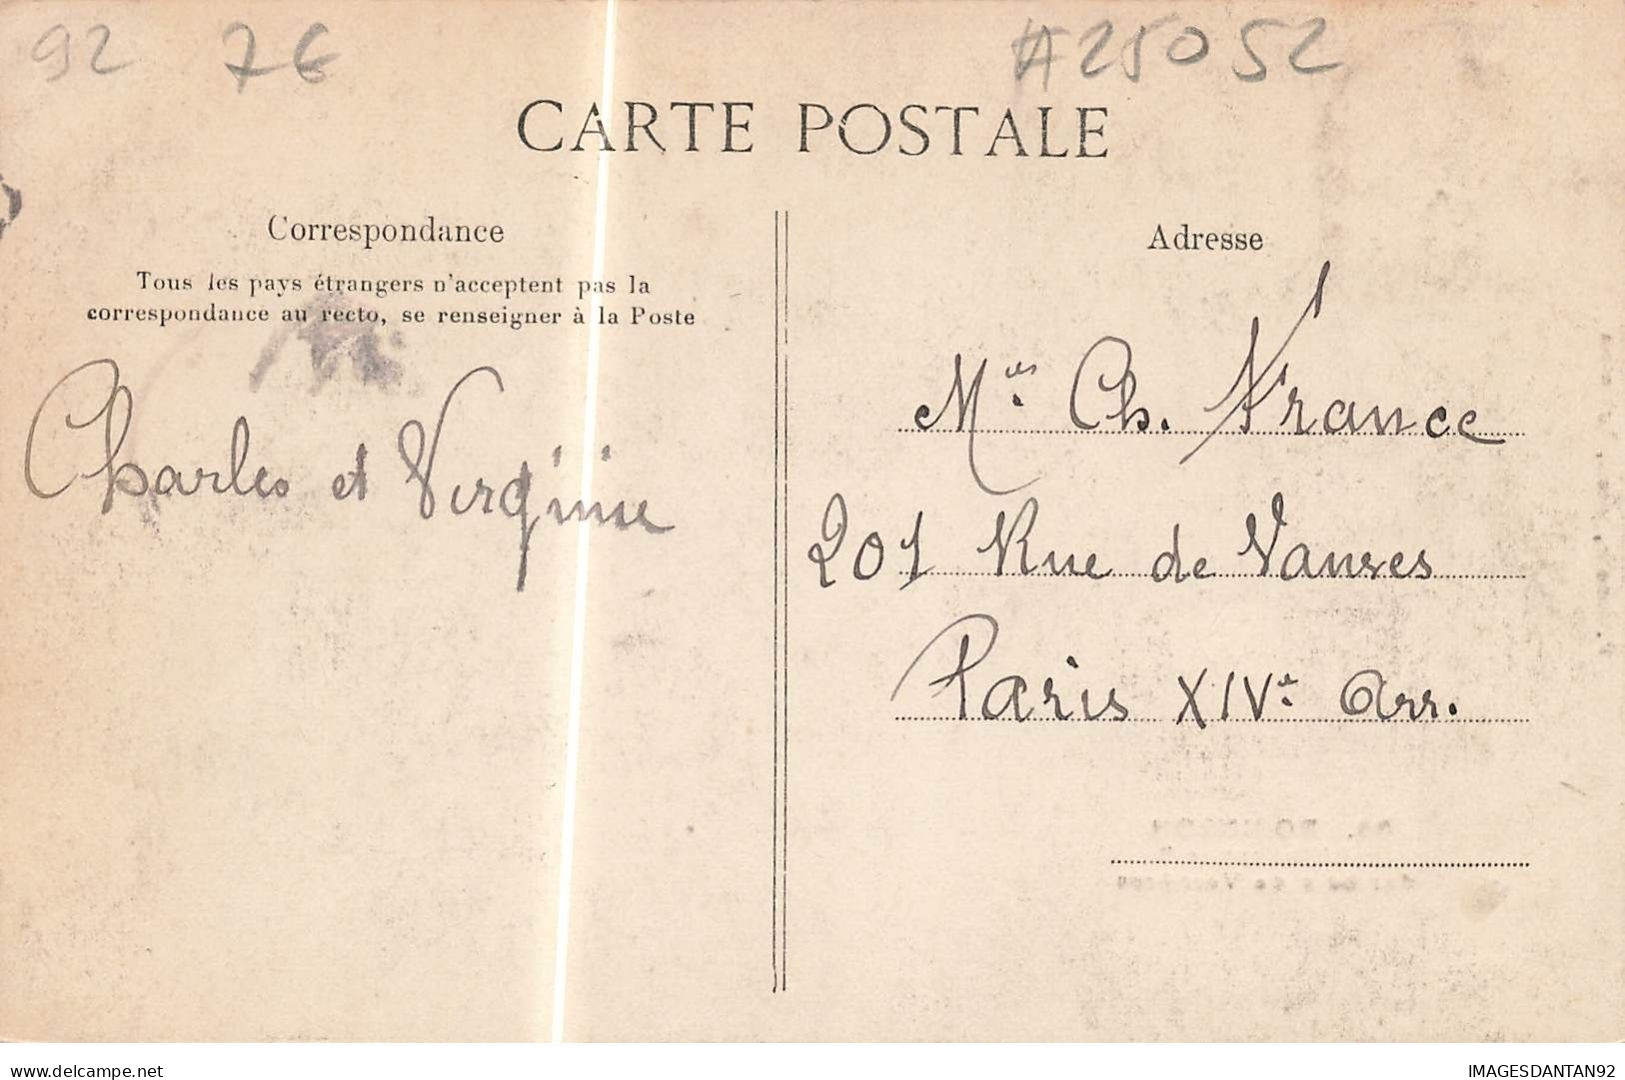 92 7€ #25052
CARTE POSTALE
Correspondance
Tous les pays étrangers n'acceptent pas la
correspondance au recto, se renseigner à la Poste
Charles et Virginie
Adresse
Ch. France
201 Rue de Vanves
Paris XIVe Arr.
IMAGESDANTAN92